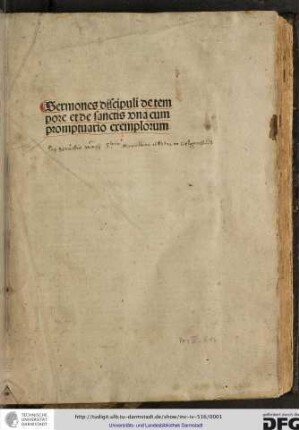 Sermones discipuli de tem
pore et de sanctis vna cum
promptuario exemplorum
http://tudigit.ulb.tu-darmstadt.de/show/inc-iv-516/0001
Universitäts- und Landesbibliothek Darmstadt
TECHNISCHE
UNIVERSITÄT
DARMSTADT
gefördert durch die
DFG